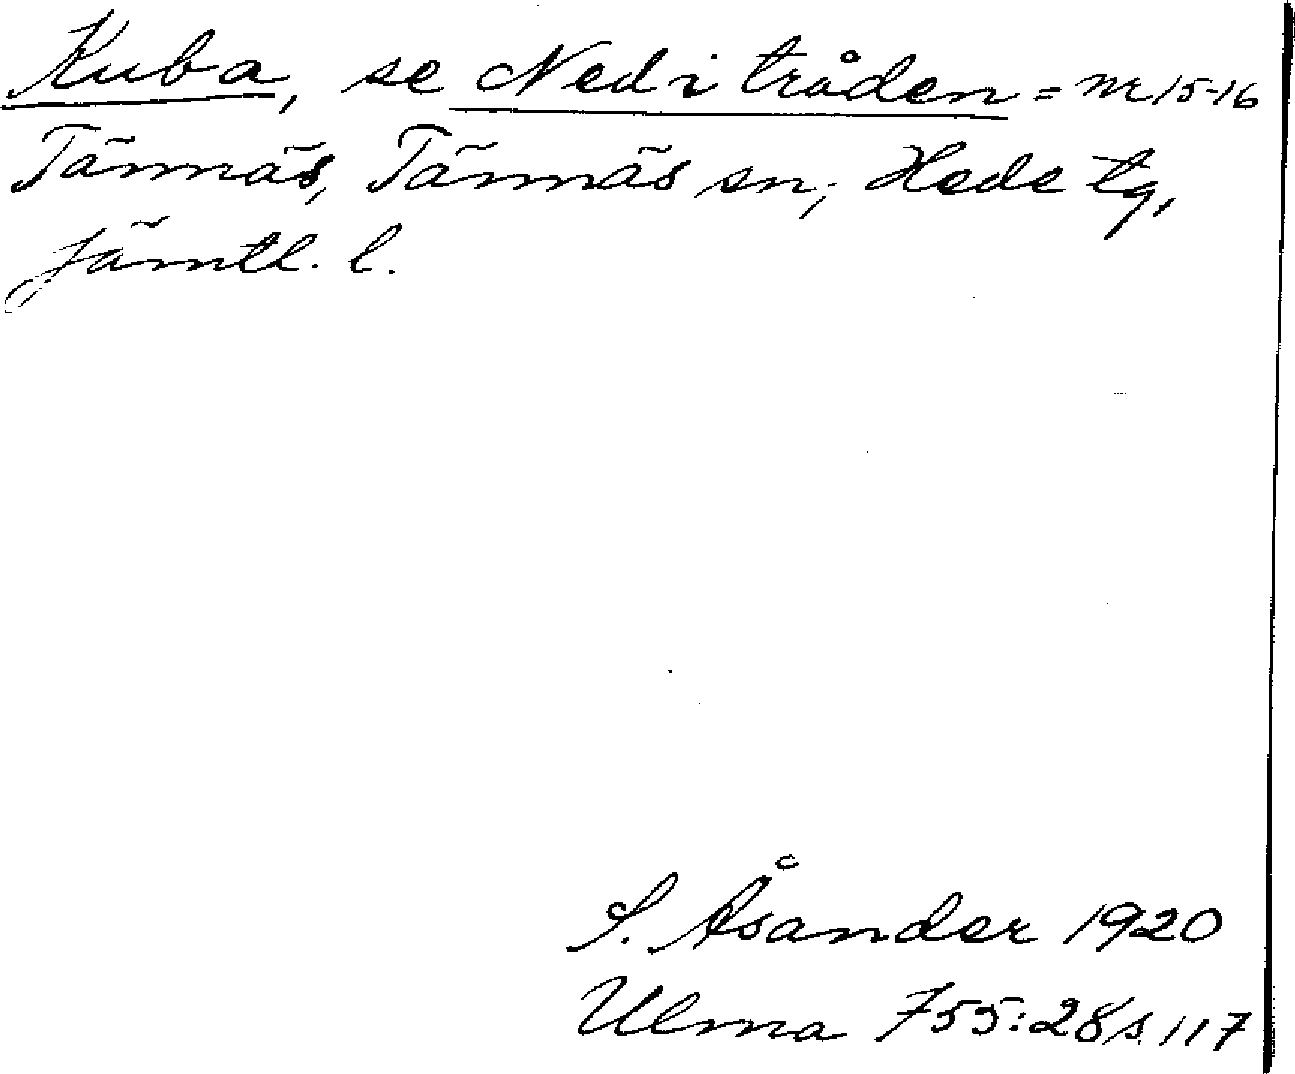 Kuba, se Ned i tråden = nr 15-16
Tännäs, Tännäs sn, Hede tg,
Jämtl. l.
S. Åsander 1920
Ulma 755:28 s. 117